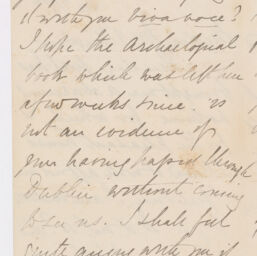 it with you viva voce?
I hope the Archaeological
book which was left here
a few weeks since. is
not an evidence of
your having passed through
Dublin without coming
to see us. I shall feel
quite angry with you if